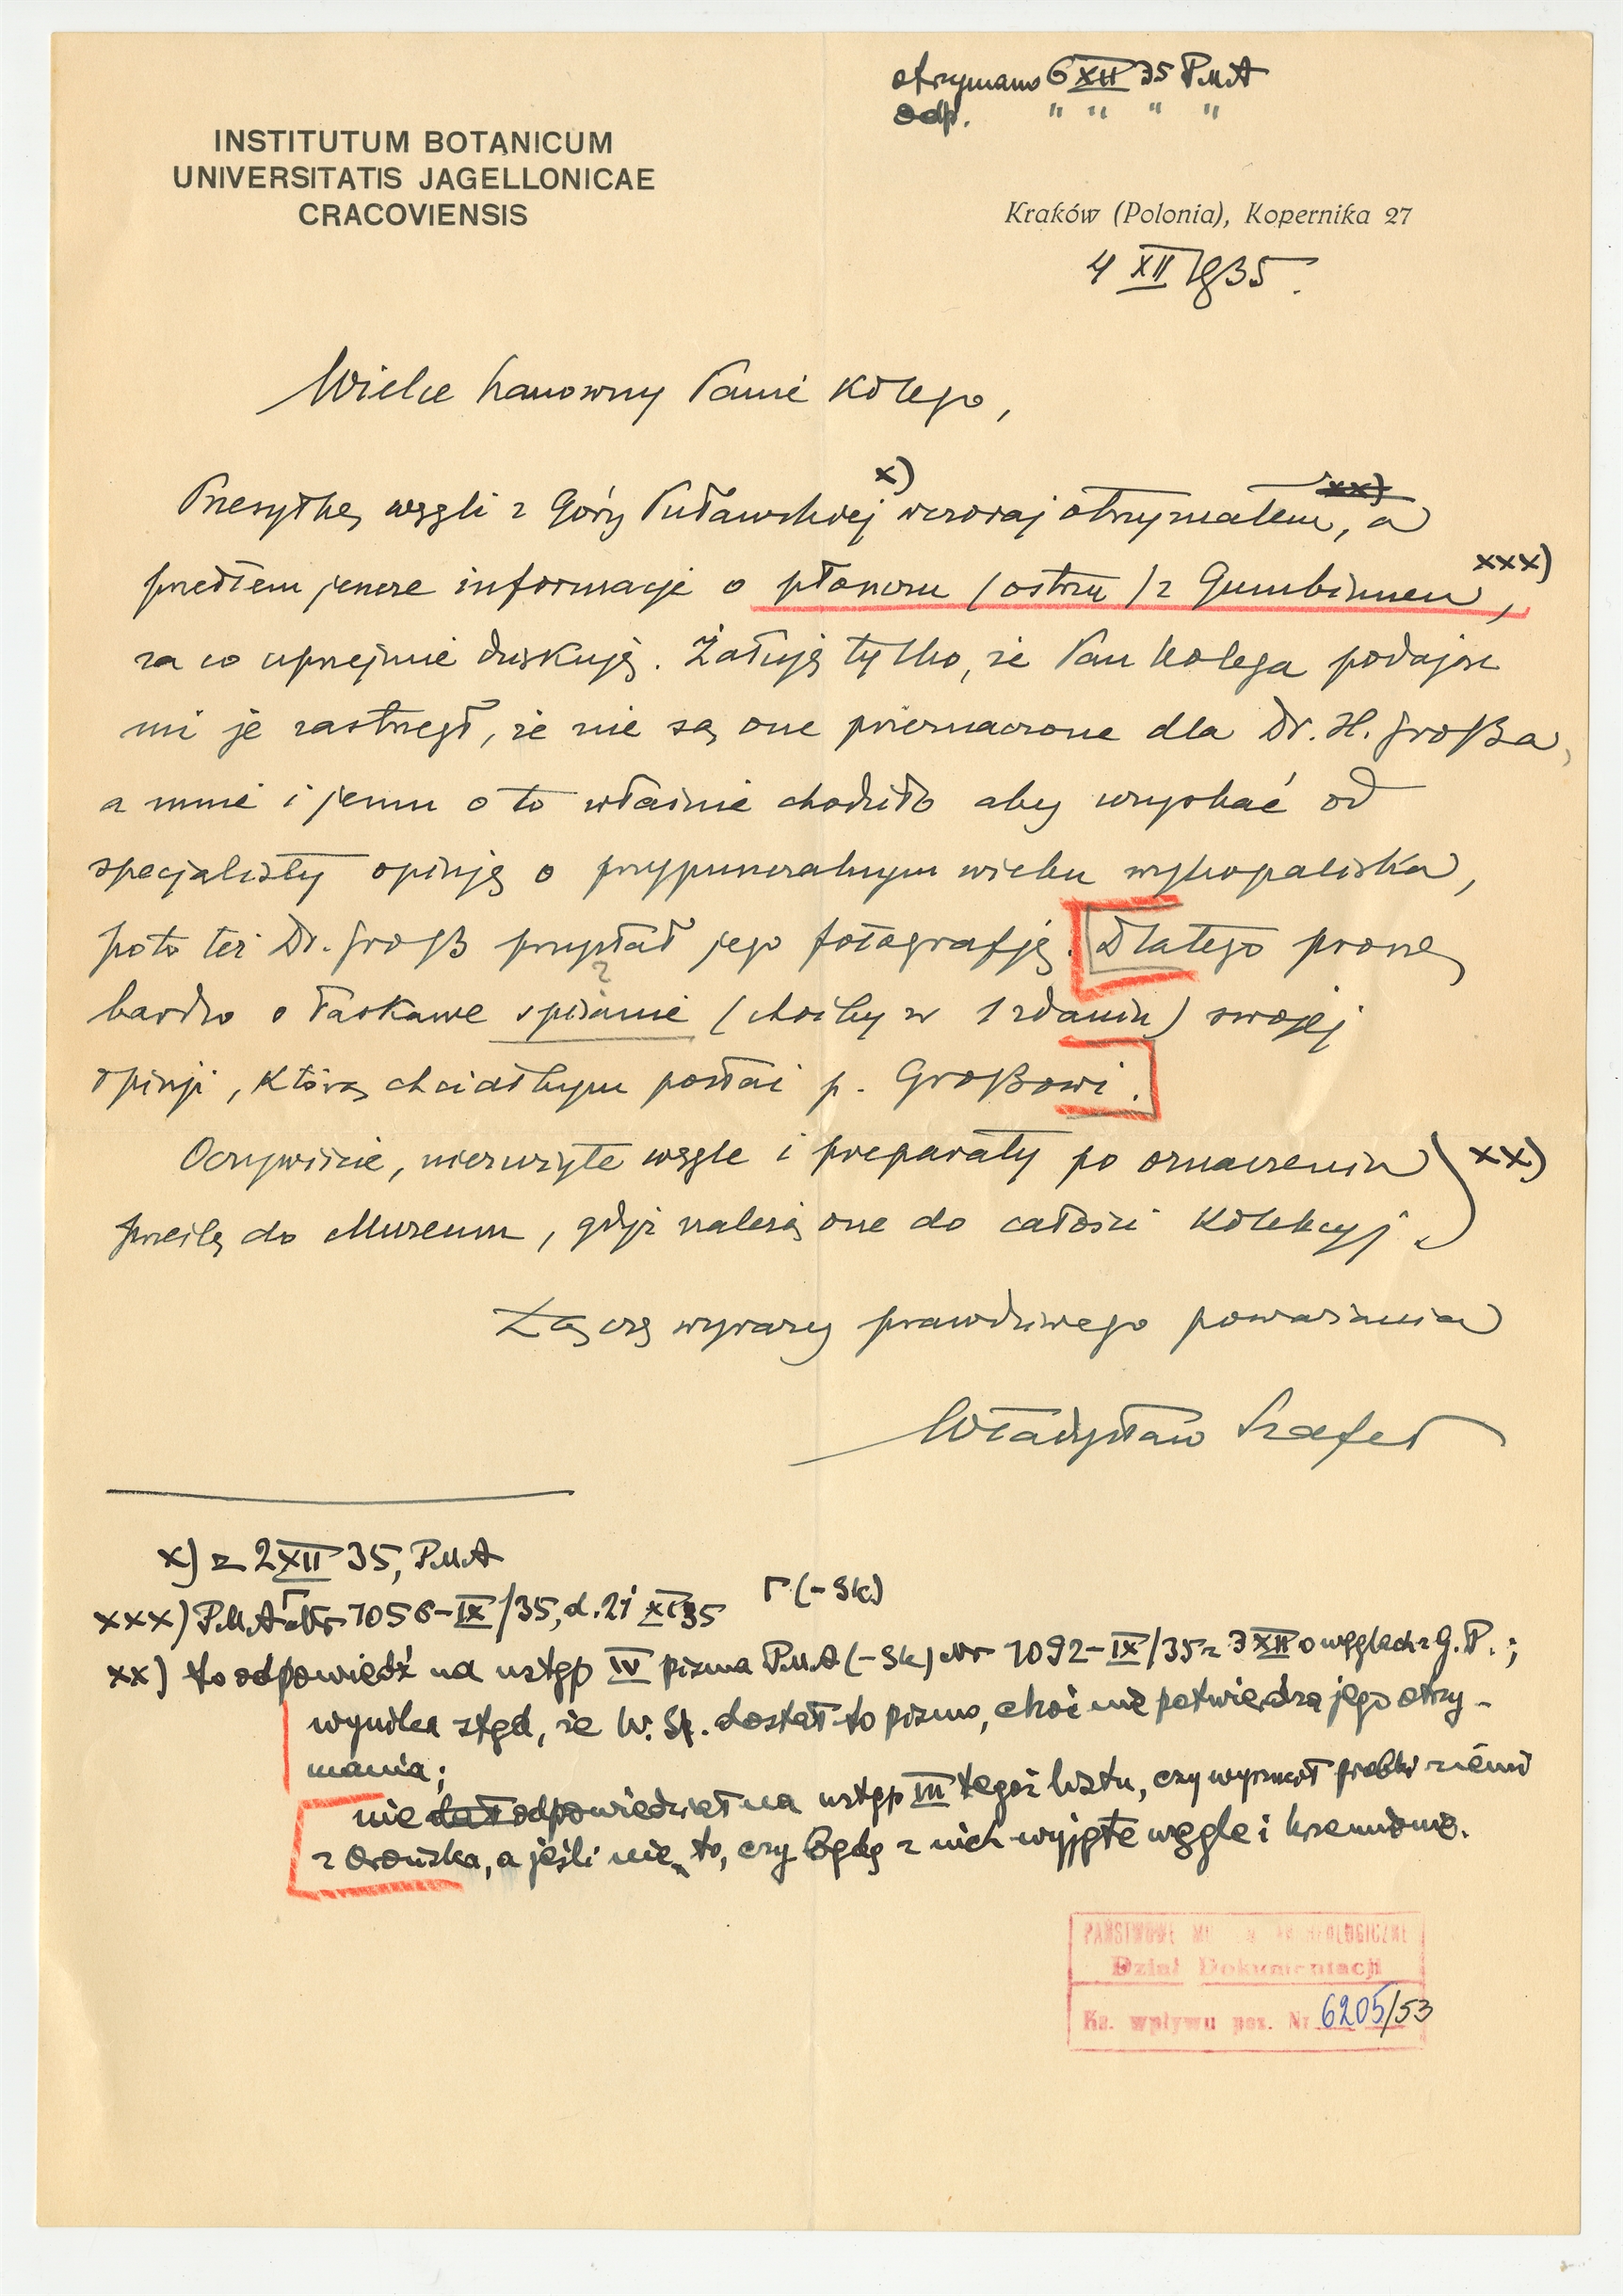 otrzymano 6 XII 35 PMA
Odp. " " " "
INSTITUTUM BOTANICUM
UNIVERSITATIS JAGELLONICAE
CRACOVIENSIS
Kraków (Polonia), Kopernika 27
4 XII 1935.
Wielce Szanowny Panie Kolego,
Przesyłkę węgli z Góry Puławskiej x) wczoraj otrzymałem, xx) a
przedtem jeszcze informacje o płoszczu (ostrzu) z Gumbinnen, xxx)
za co uprzejmie dziękuję. Żałuję tylko, że Pan Kolega podając
mi je zastrzegł, że nie są one przeznaczone dla Dr. H. Großa,
a mnie i jemu o to właśnie chodziło aby uzyskać od
specjalisty opinję o przypuszczalnym wieku wykopaliska,
poto też Dr. Groß przysłał jego fotografję. Dlatego proszę
bardzo o łaskawe spisanie ? (choćby w 1 zdaniu) swojej
opinji, którą chciałbym posłać p. Großowi.
Oczywiście, niezużyte węgle i preparaty po oznaczeniu xx)
prześlę do Muzeum, gdyż należą one do całości kolekcyj.
Łączę wyrazy prawdziwego poważania
Władysław Szafer
x) z 2 XII 35, PMA
xxx) PMA Nr 1056-IX/35, d. 21 XI 35 (-Sk)
xx) to odpowiedź na ustęp IV pisma PMA (-Sk) Nr 1092-IX/35 z 3 XII o węglach z G. P.;
wynika stąd, że W. Sz. dostał to pismo, choć nie potwierdza jego otrzy-
mania;
nie dał odpowiedział na ustęp III tegoż listu, czy wyrzucił próbki ziemi
z Orońska, a jeśli nie, to, czy będą z nich wyjęte węgle i krzemienie.
PAŃSTWOWE MUZEUM ARCHEOLOGICZNE
Dział Dokumentacji
Ks. wpływu poz. Nr 6205/53